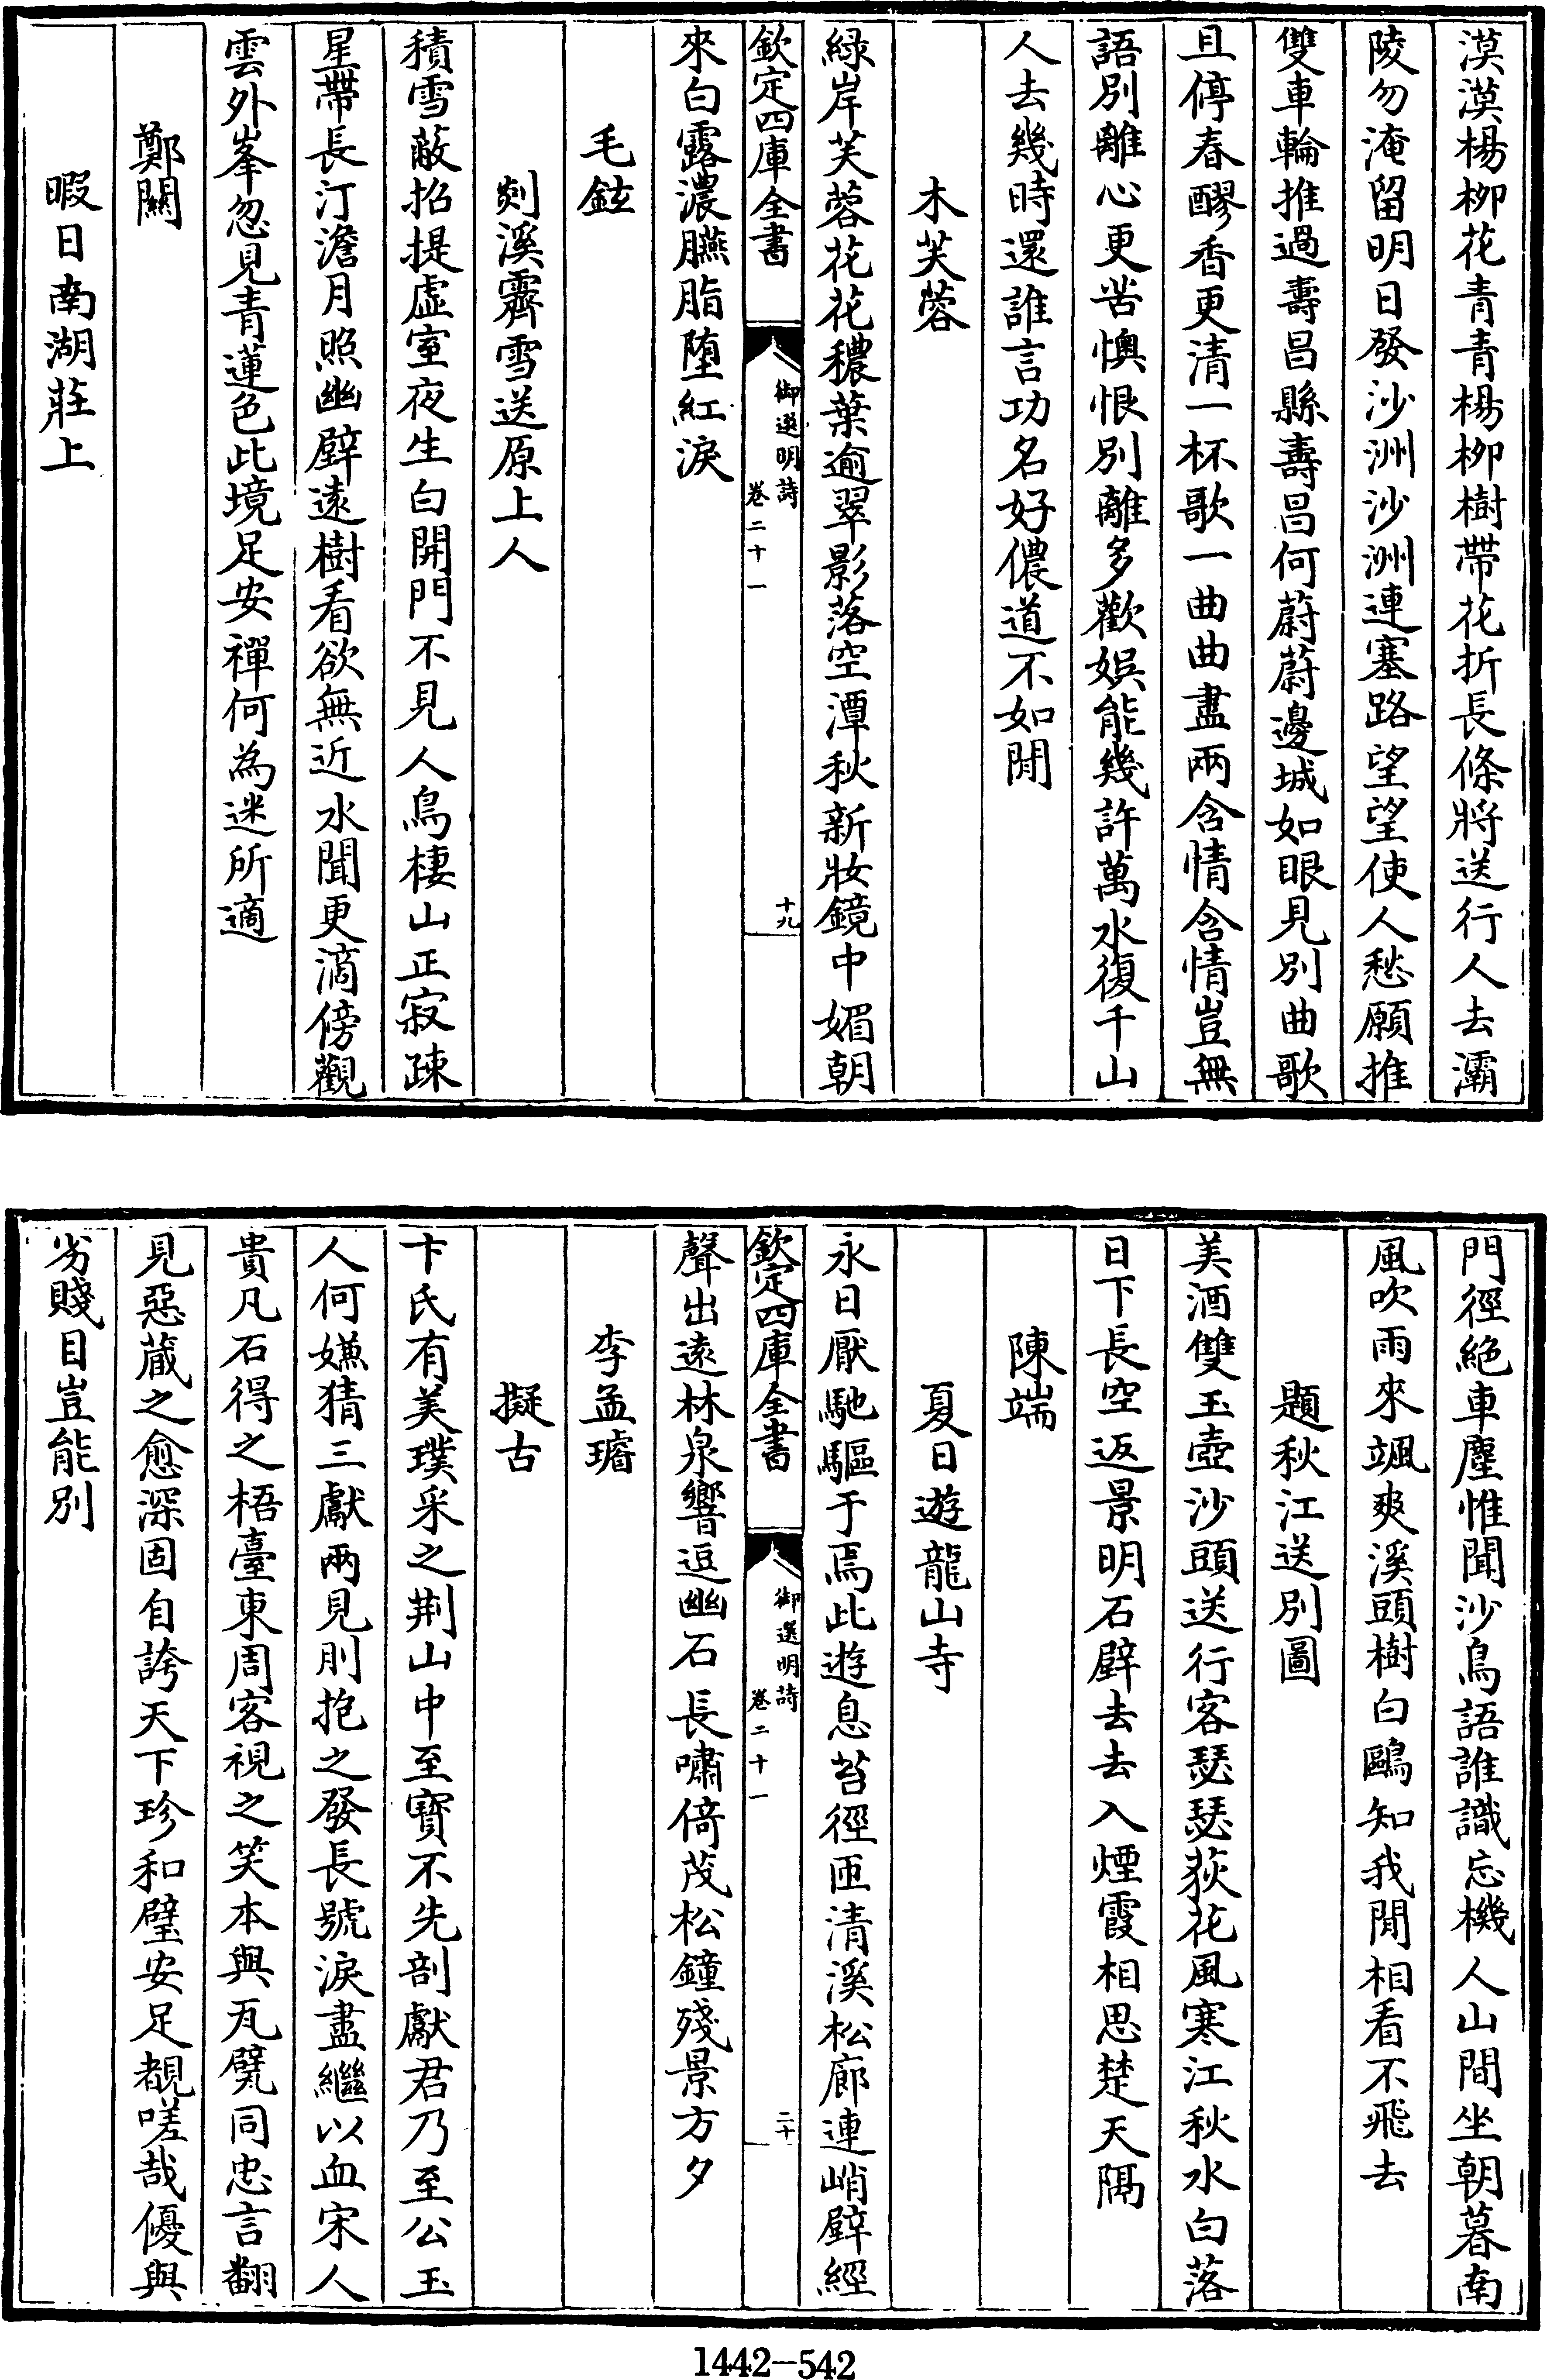 漠漠楊柳花青青楊柳樹帶花折長條將送行人去灞
陵勿淹留明日發沙洲沙洲連塞路望望使人愁願推
雙車輪推過壽昌縣壽昌何蔚蔚邊城如眼見別曲歌
且停春醪香更清一杯歌一曲曲盡兩含情含情豈無
語別離心更苦懊恨別離多歡娛能幾許萬水復千山
人去幾時還誰言功名好儂道不如閒
木芙蓉
緑岸芙蓉花花穠葉逾翠影落空潭秋新妝鏡中媚朝
欽定四庫全書
御選明詩
卷二十一
十九
來白露濃臙脂墮紅淚
毛鉉
剡溪霽雪送原上人
積雪蔽招提虛室夜生白開門不見人鳥棲山正寂疎
星帶長汀澹月照幽壁遠樹看欲無近水聞更滴傍觀
雲外峯忽見青蓮色此境足安禪何為迷所適
鄭關
暇日南湖莊上
門徑絕車塵惟聞沙鳥語誰識忘機人山間坐朝暮南
風吹雨來颯爽溪頭樹白鷗知我閒相看不飛去
題秋江送別圖
美酒雙玉壺沙頭送行客瑟瑟荻花風寒江秋水白落
日下長空返景明石壁去去入煙霞相思楚天隔
陳端
夏日遊龍山寺
永日厭馳驅于焉此遊息苔徑匝清溪松廊連峭壁經
欽定四庫全書
御選明詩
卷二十一
二十
聲出遠林泉響逗幽石長嘯倚茂松鐘殘景方夕
李孟璿
擬古
卞氏有美璞采之荆山中至寶不先剖獻君乃至公玉
人何嫌猜三獻兩見刖抱之發長號淚盡繼以血宋人
貴凡石得之梧臺東周客視之笑本與瓦甓同忠言翻
見惡蔵之愈深固自誇天下珍和璧安足覩嗟哉優與
劣賤目豈能別
1442-542